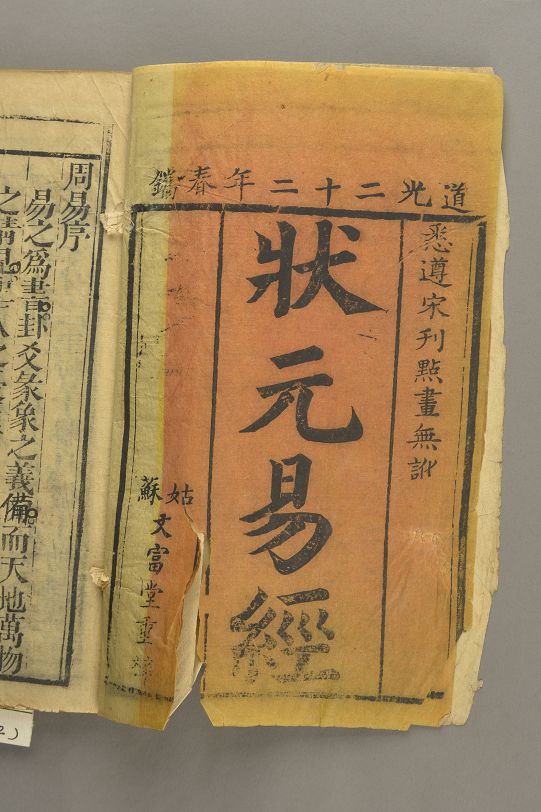 道光二十二年春鐫
悉遵宋刊點畫無訛
狀元易經
姑蘇
文富堂重
周易序
易之爲書卦爻彖象之義備而天地萬物
之情